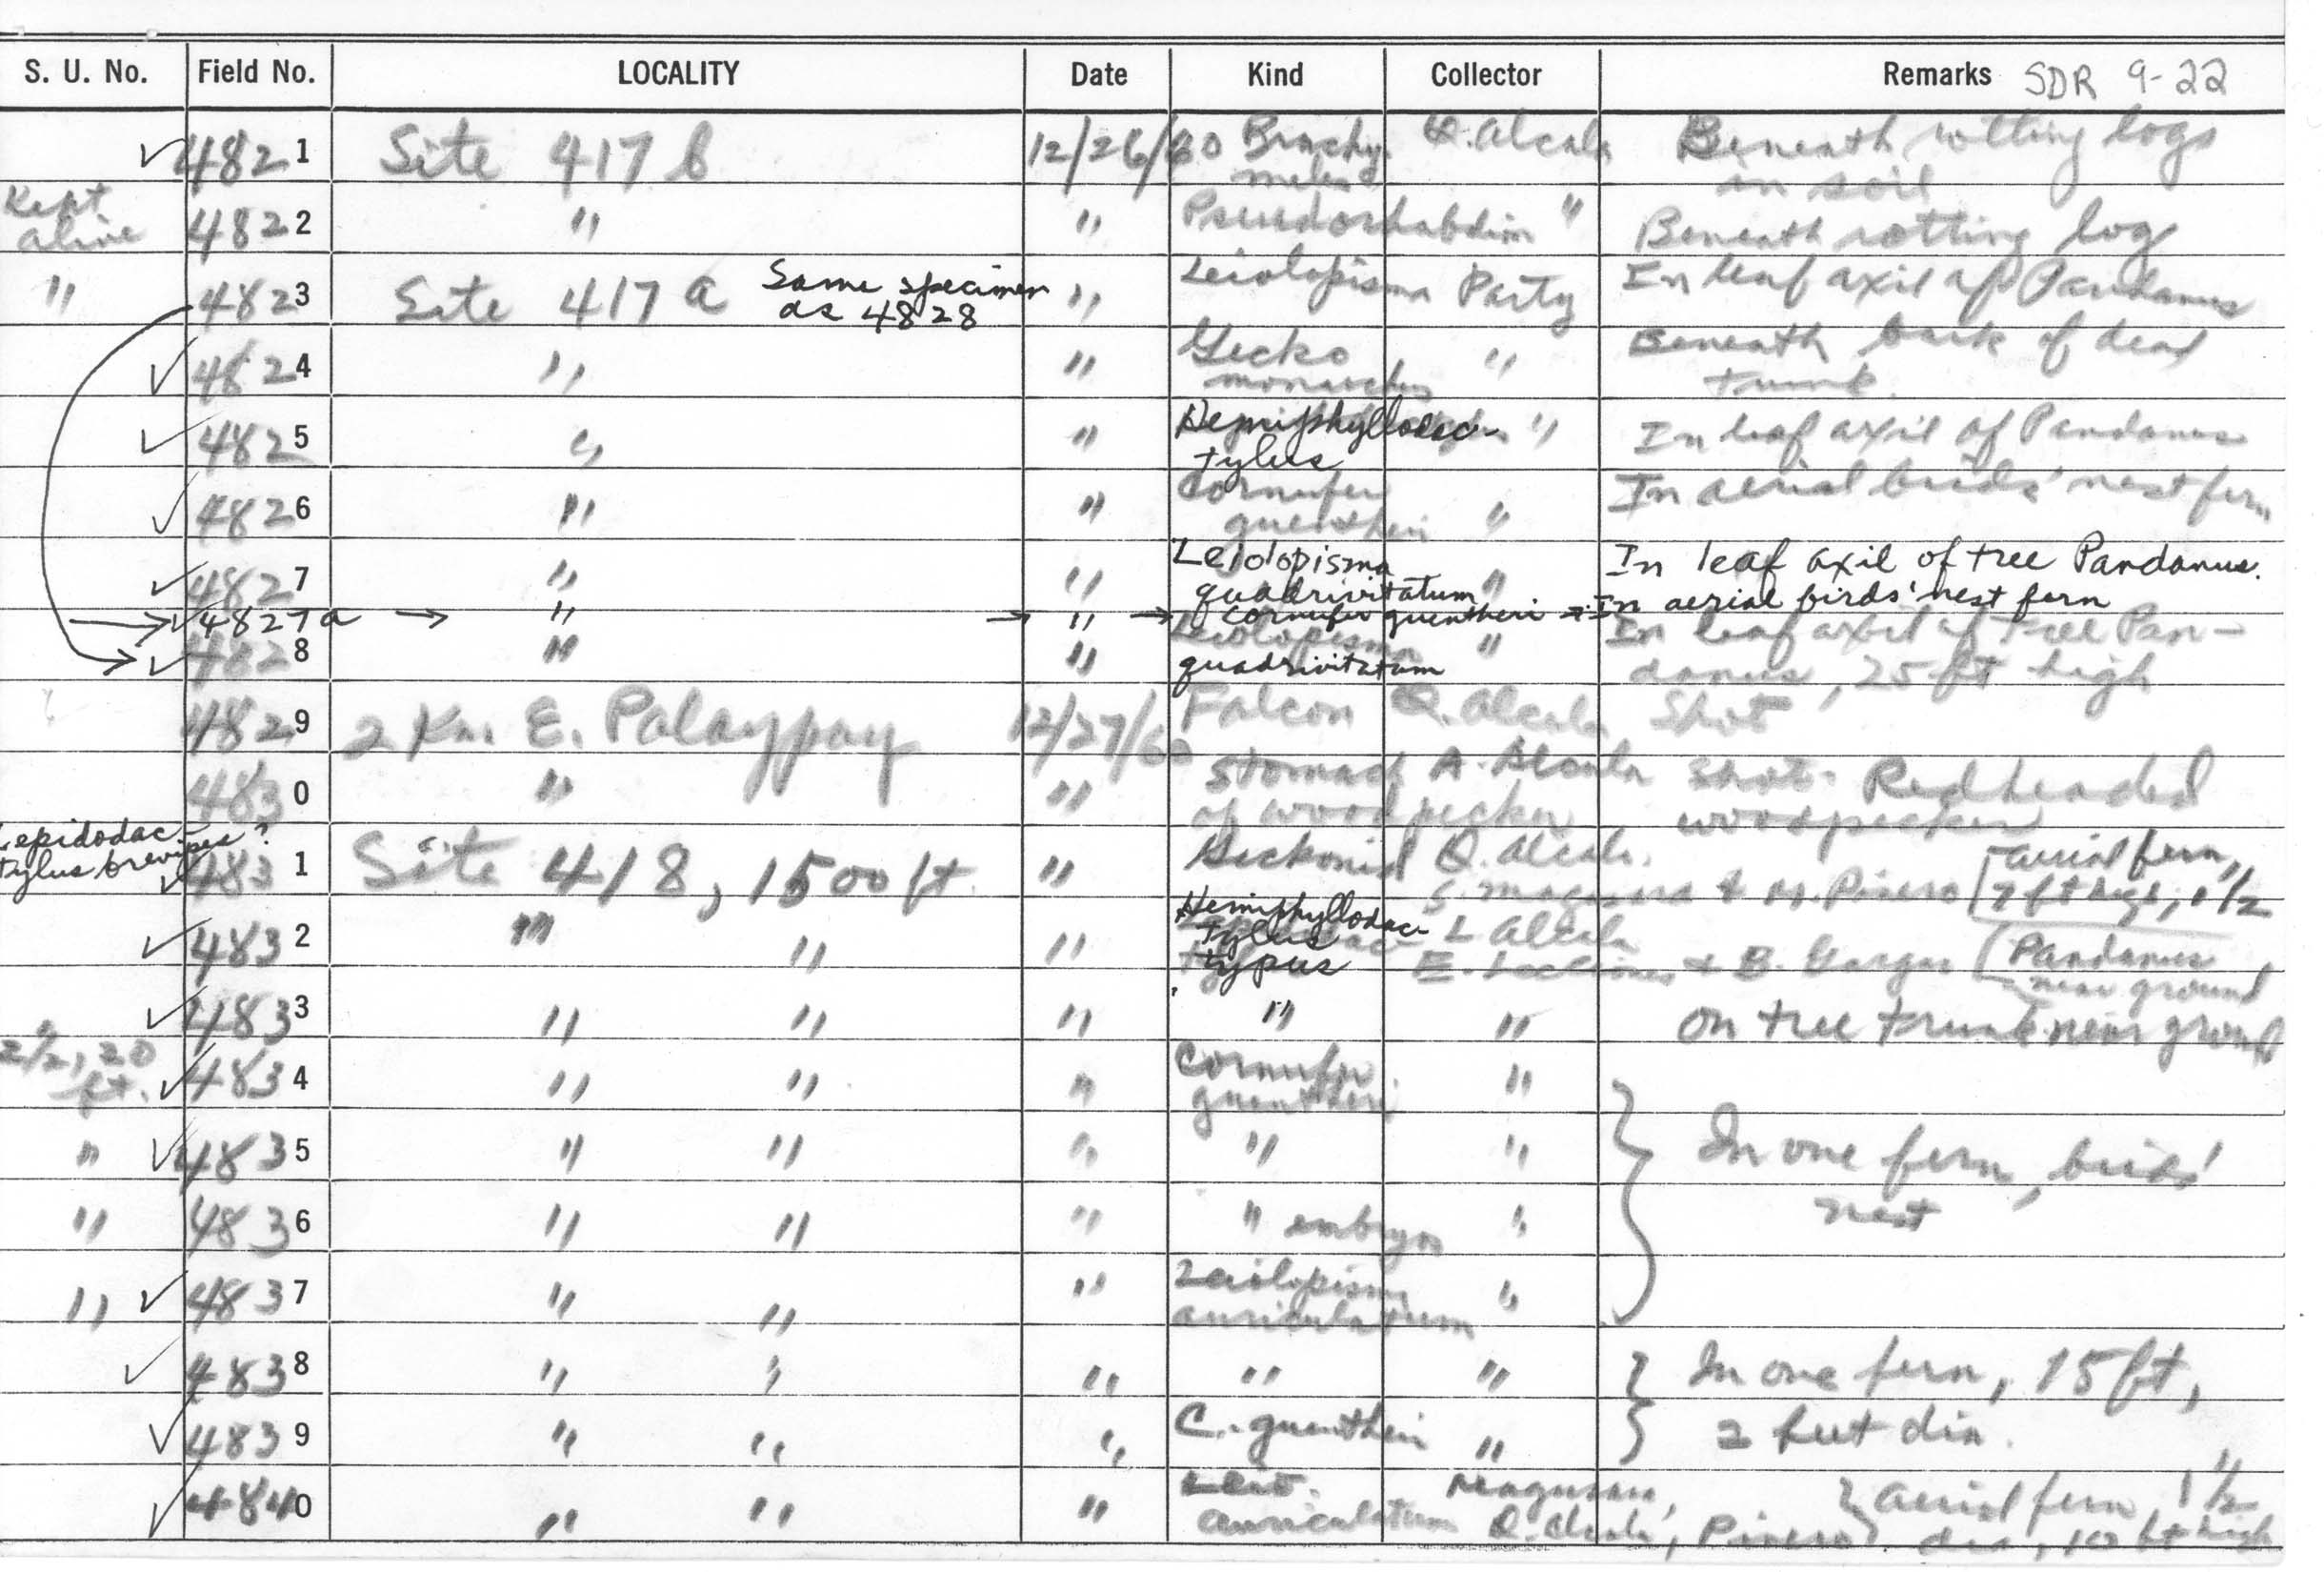 S. U. No. Field No. LOCALITY Date Kind Collector Remarks SDR 9-22
4821 Site 417 b 12/26/60 Brachy- Q. Alcala Beneath rotting logs
meles in soil
Kept
alive 4822 " " Pseudorhabdion " Beneath rotting log
" 4823 Site 417 a Same specimen " Leiolopisma Party In leaf axil of Pandanus
as 4828
4824 " " Gecko " Beneath bark of dead
monarchus trunk
4825 " " Hemiphyllodac- " In leaf axil of Pandanus
tylus
4826 " " Cornufer " In aerial birds' nest fern
guentheri
4827 " " Leiolopisma " In leaf axil of tree Pandanus.
quadrivitatum
4827a → " → " → Cornufer guentheri → In aerial birds' nest fern
4828 " " Leiolopisma " In leaf axil of tree Pan-
quadrivitatum danus, 25 ft high
4829 2 Km. E. Palaypay 12/27/60 Falcon Q. Alcala Shot
4830 " " Stomach A. Alcala Shot. Redheaded
of woodpecker woodpecker
Lepidodac-
tylus brevipes?
4831 Site 418, 1500 ft. " Geckonid Q. Alcala, aerial fern,
S. Magusara & M. Pinero 7 ft high, 1 1/2
4832 " " " Hemiphyllodac- L Alcala
tylus
typus E. & B. Gargar Pandanus
near ground
4833 " " " " " On tree trunk near ground
2 1/2, 20
ft. 4834 " " " Cornufer "
guentheri
" 4835 " " " " " In one fern, birds'
nest
" 4836 " " " " embryo "
" 4837 " " " Leiolopisma "
auriculatum
4838 " " " " " In one fern, 15 ft,
4839 " " " C. guentheri " 2 feet dia.
4840 " " " Leio. Magusara, aerial fern 1 1/2
auriculatum Q. Alcala, Pinero dia, 10 ft high